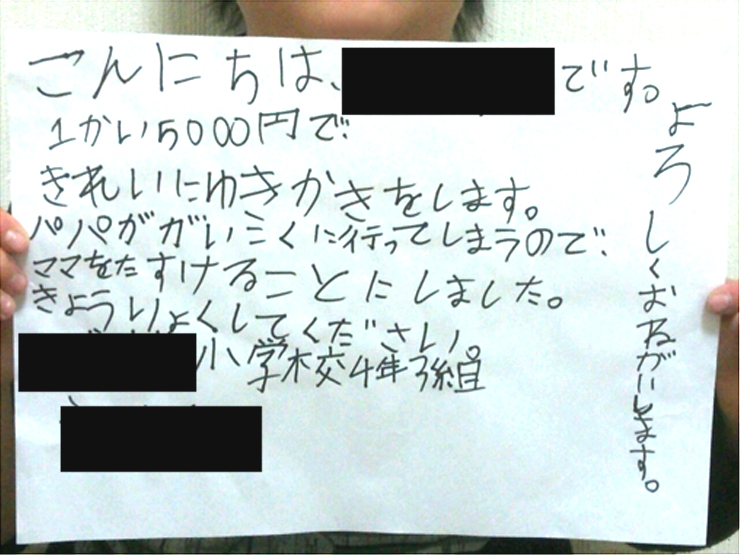 こんにちは、です。
1かい5000円で
きれいにゆきかきをします。
パパがガいこくに行ってしまうので
ママをたすけることにしました。
きょうりょくしてください。
小学校4年3組
よろしくおねがいします。